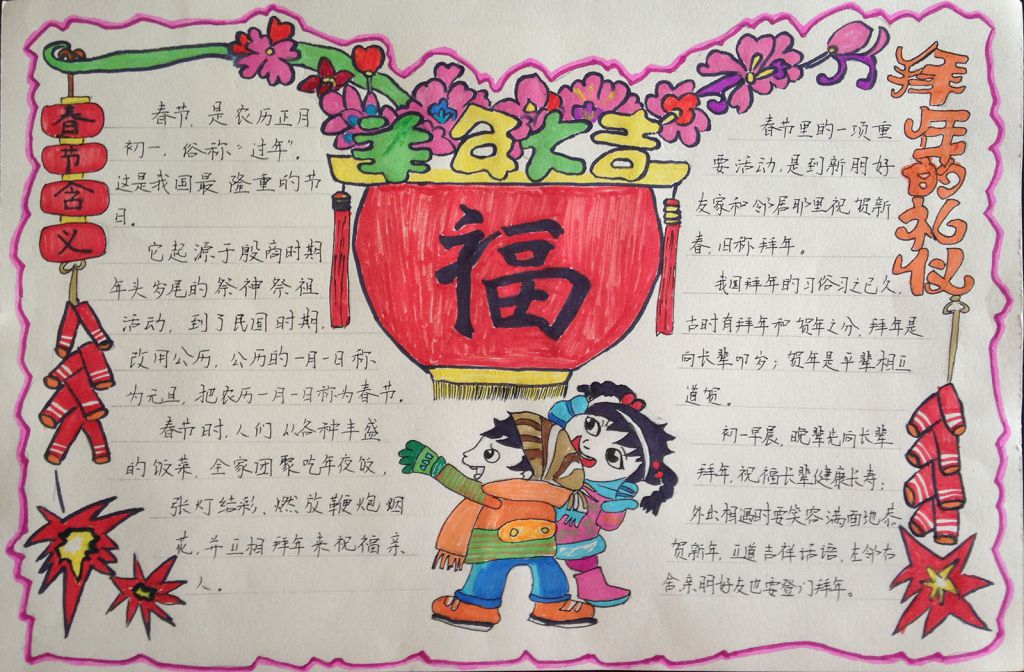 春节含义
春节,是农历正月
初一,俗称"过年"。
这是我国最隆重的节
日。
它起源于殷商时期
年头岁尾的祭神祭祖
活动,到了民国时期,
改用公历,公历的一月一日称
为元旦,把农历一月一日称为春节。
春节时,人们从各种丰盛
的饭菜,全家团聚吃年夜饭,
张灯结彩,燃放鞭炮烟
花,并互相拜年来祝福亲
人。
羊年大吉
福
拜年的礼仪
春节里的一项重
要活动,是到新朋好
友家和邻居那里祝贺新
春,旧称拜年。
我国拜年的习俗习之已久,
古时有拜年和贺年之分,拜年是
向长辈叩岁;贺年是平辈相互
道贺。
初一早晨,晚辈先向长辈
拜年,祝福长辈健康长寿;
外出相遇时要笑容满面地恭
贺新年,互道吉祥话语,左邻右
舍亲朋好友也要登门拜年。